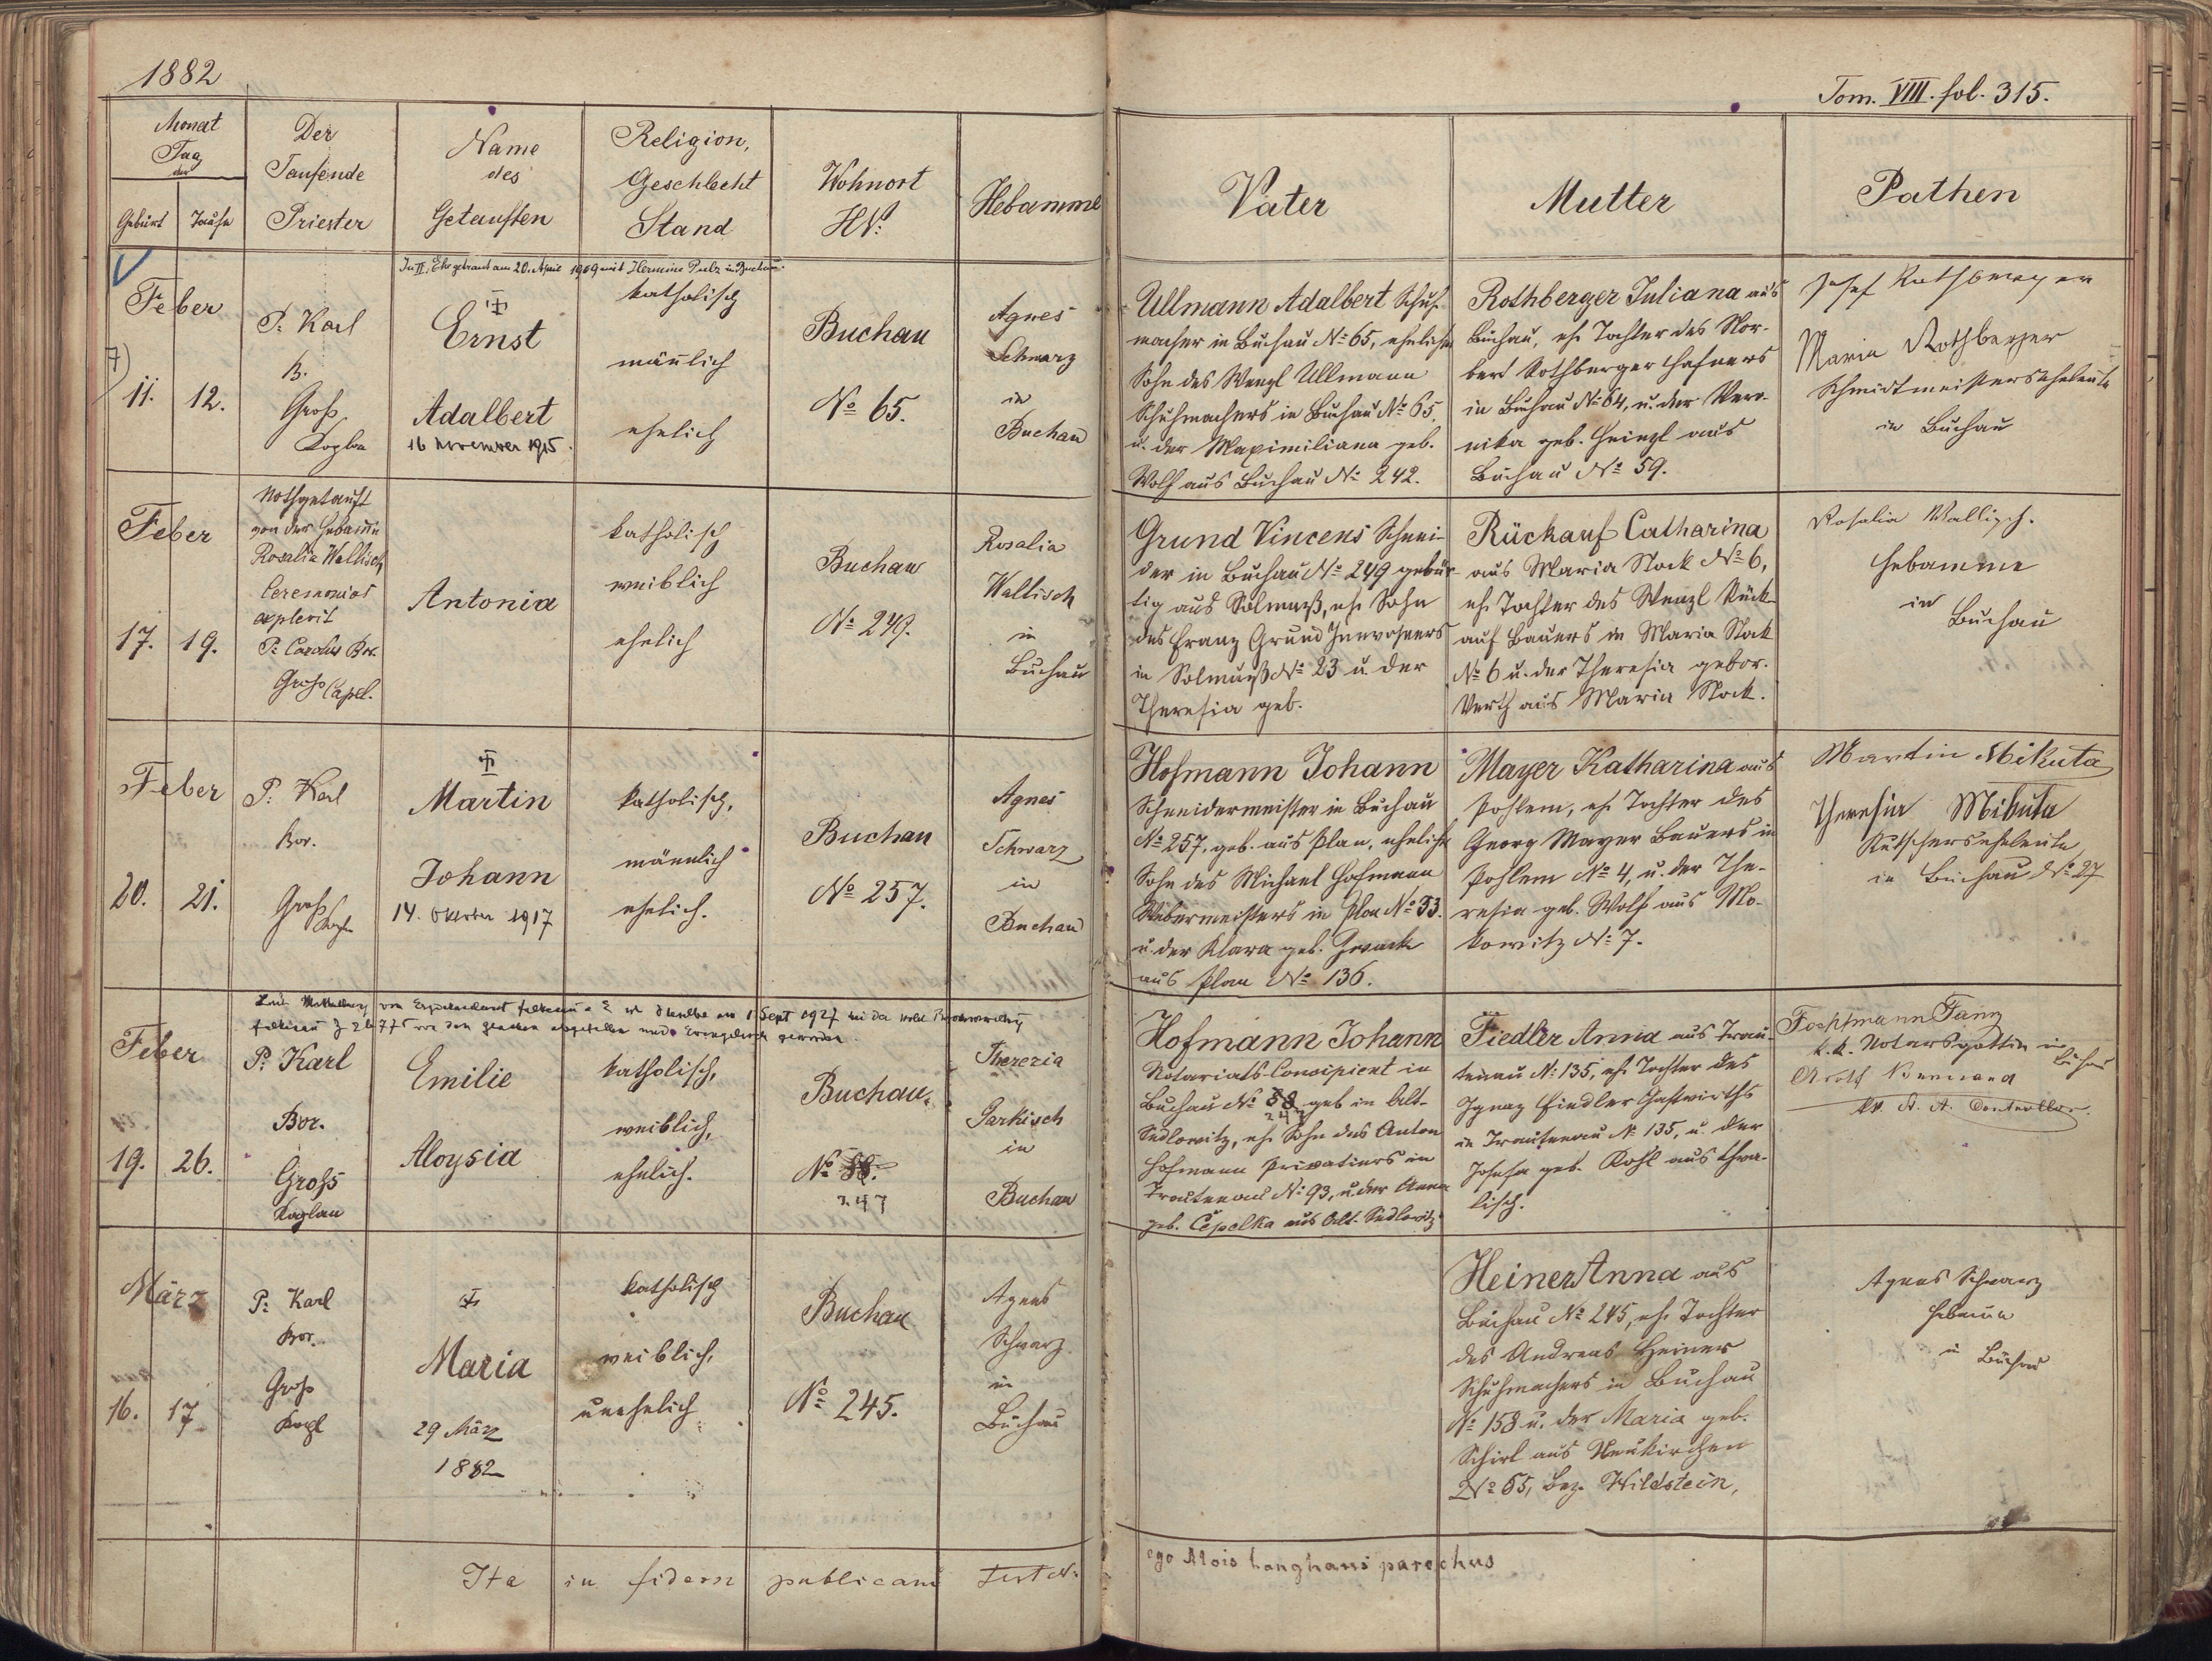 1882
Tom. VIII. fol. 315.
Monat
Tag
der
Geburt
Taufe
Der
Taufende
Priester
Name
des
Getauften
Religion,
Geschlecht
Stand
Wohnort
HN:
Hebamme
Vater
Mutter
Pathen
In II. Ehe getraut am 20. April 1909 mit Hermine Pulz in Buchau
Feber
7)
11.
12.
P. Karl
B.
Groß
Ernst
Adalbert
16 November 1915.
katholisch
mänlich
ehelich
Buchau
No 65.
Agnes
Schwarz
in
Buchau
Ullmann Adalbert Schuh-
macher in Buchau No 65, ehelicher
Sohn des Wenzl Ullmann
Schuhmachers in Buchau No 65,
u. der Maximiliana geb.
Wolf aus Buchau No 242.
Rothberger Juliana aus
Buchau, eh. Tochter des Nor-
bert Rothberger Hafners
in Buchau No 64, u. der Vero-
nika geb. Heinzl aus
Buchau No 59.
Josef Rothberger
Maria Rothberger
Schmidtmeisterseheleute
in Buchau
Feber
17.
19.
Nothgetauft
von der Hebamme
Rosalia Wallisch
Ceremonias
explevit
P. Carolus Bor.
Groß Capel.
Antonia
katholisch
weiblich
ehelich
Buchau
No 249.
Rosalia
Wallisch
in
Buchau
Grund Vincens Schnei-
der in Buchau No 249 gebür-
tig aus Solmuß, eh. Sohn
des Franz Grund Inwohners
in Solmuß No 23 u. der
Theresia geb.
Rückauf Catharina
aus Maria Stock No 6,
eh. Tochter des Wenzl Rück-
auf Bauers in Maria Stock
No 6 u. der Theresia gebor.
Werth aus Maria Stock.
Rosalia Wallisch.
Hebamme
in
Buchau
Feber
20.
21.
P. Karl
Bor.
Groß
Martin
Johann
14. Oktober 1917
katholisch,
männlich
ehelich.
Buchau
No 257.
Agnes
Schwarz
in
Buchau
Hofmann Johann
Schneidermeister in Buchau
No 257, geb. aus Plan, ehelicher
Sohn des Michael Hofmann
Webermeisters in Plan No 33.
u. der Klara geb. Zwack
aus Plan No 136.
Mayer Katharina aus
Pohlem, eh. Tochter des
Georg Mayer Bauers in
Pohlem No 4, u. der The-
resia geb. Wolf aus Mo-
kowitz No 7.
Martin Mikuta
Theresia Mikuta
Kutscherseheleute
in Buchau No 27
1. Sept 1927
Feber
19.
26.
P. Karl
Bor.
Groß
Kaplan
Emilie
Aloysia
katholisch,
weiblich,
ehelich.
Buchau.
No 88.
247
Therezia
Parkisch
in
Buchau
Hofmann Johann
Notariats-Concipient in
Buchau No 88 geb in Alt-
247
Sedlowitz, eh. Sohn des Anton
Hofmann Privatiers in
Trautenau No 93, u. der Anna
geb. Čepelka aus Alt-Sedlowitz
Fiedler Anna aus Trau-
tenau No 135, eh. Tochter des
Ignaz Fiedler Gastwirths
in Trautenau No 135, u. der
Josefa geb. Kohl aus
k.k. Notarsgattin in
Buchau
März
16.
17.
P. Karl
Bor.
Groß
Maria
29 März
1882
katholisch
weiblich,
unehelich
Buchau
No 245.
Agnes
Schwarz
in
Buchau
Heiner Anna aus
Buchau No 245, eh. Tochter
des Andreas Heiner
Schuhmachers in Buchau
No 158 u. der Maria geb.
Schirl aus Neukirchen
No 65, Bez. Wildstein,
Agnes Schwarz
Hebamme
in Buchau
Ita in fidem publicam testor
ego Alois Langhans parochus